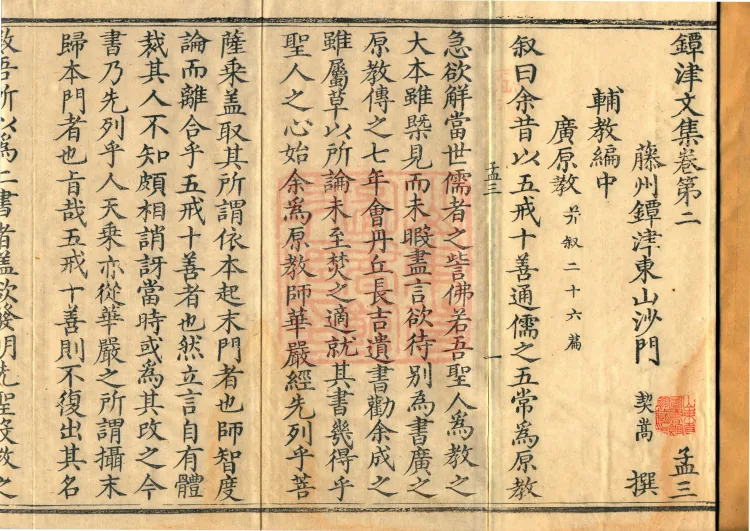 鐔津文集卷第二　孟三
藤州鐔津東山沙門　契嵩　撰
輔教編中
廣原教　并叙二十六篇
叙曰余昔以五戒十善通儒之五常爲原教
孟三　一
急欲解當世儒者之訾佛若吾聖人爲教之
大本雖槩見而未暇盡言欲待別為書廣之
原教傳之七年會丹丘長吉遺書勸余成之
雖屬草以所論未至焚之適就其書幾得乎
聖人之心始余爲原教師華嚴經先列乎菩
薩乘盖取其所謂依本起末門者也師智度
論而離合乎五戒十善者也然立言自有體
裁其人不知頗相誚訝當時或為其改之今
書乃先列乎人天乘亦從華嚴之所謂攝末
歸本門者也肯哉五戒十善則不復出其名
教吾所以爲二書者盖欲發明先聖設教之